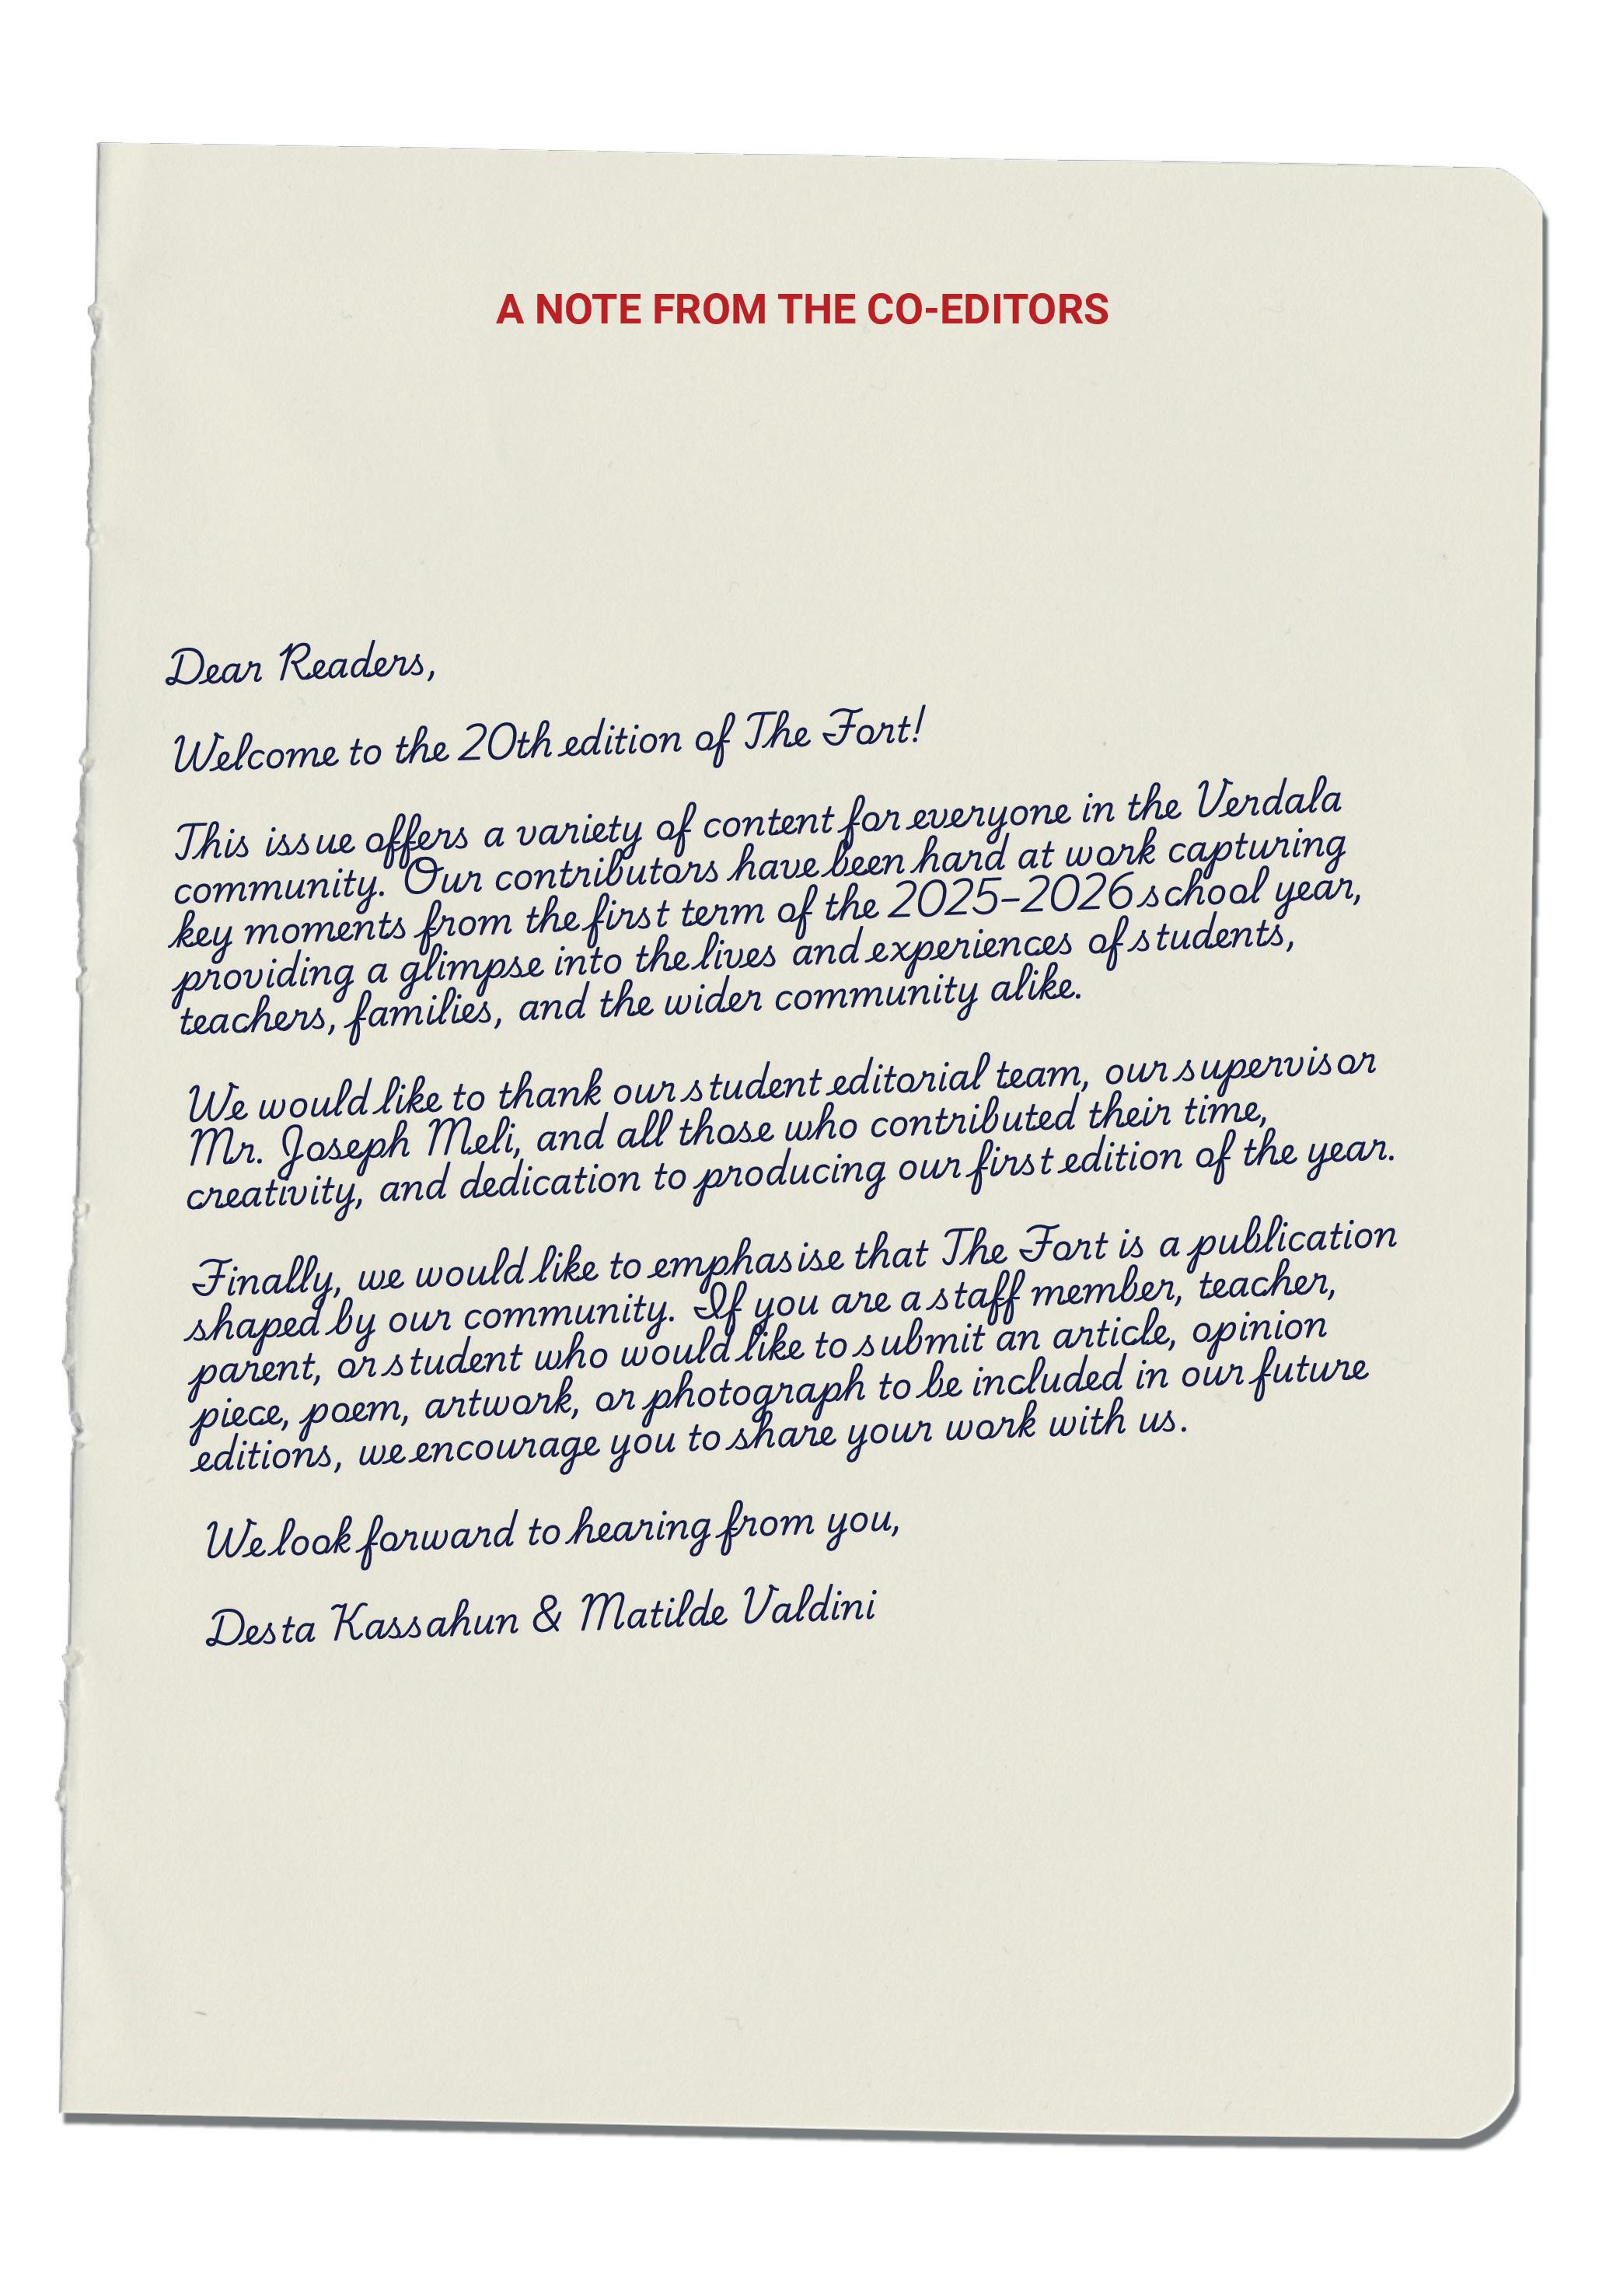 A NOTE FROM THE CO-EDITORS
Dear Readers,
Welcome to the 20th edition of The Fort!
This issue offers a variety of content for everyone in the Verdala
community. Our contributors have been hard at work capturing
key moments from the first term of the 2025-2026 school year,
providing a glimpse into the lives and experiences of students,
teachers, families, and the wider community alike.
We would like to thank our student editorial team, our supervisor
Mr. Joseph Meli, and all those who contributed their time,
creativity, and dedication to producing our first edition of the year.
Finally, we would like to emphasise that The Fort is a publication
shaped by our community. If you are a staff member, teacher,
parent, or student who would like to submit an article, opinion
piece, poem, artwork, or photograph to be included in our future
editions, we encourage you to share your work with us.
We look forward to hearing from you,
Desta Kassahun & Matilde Valdini